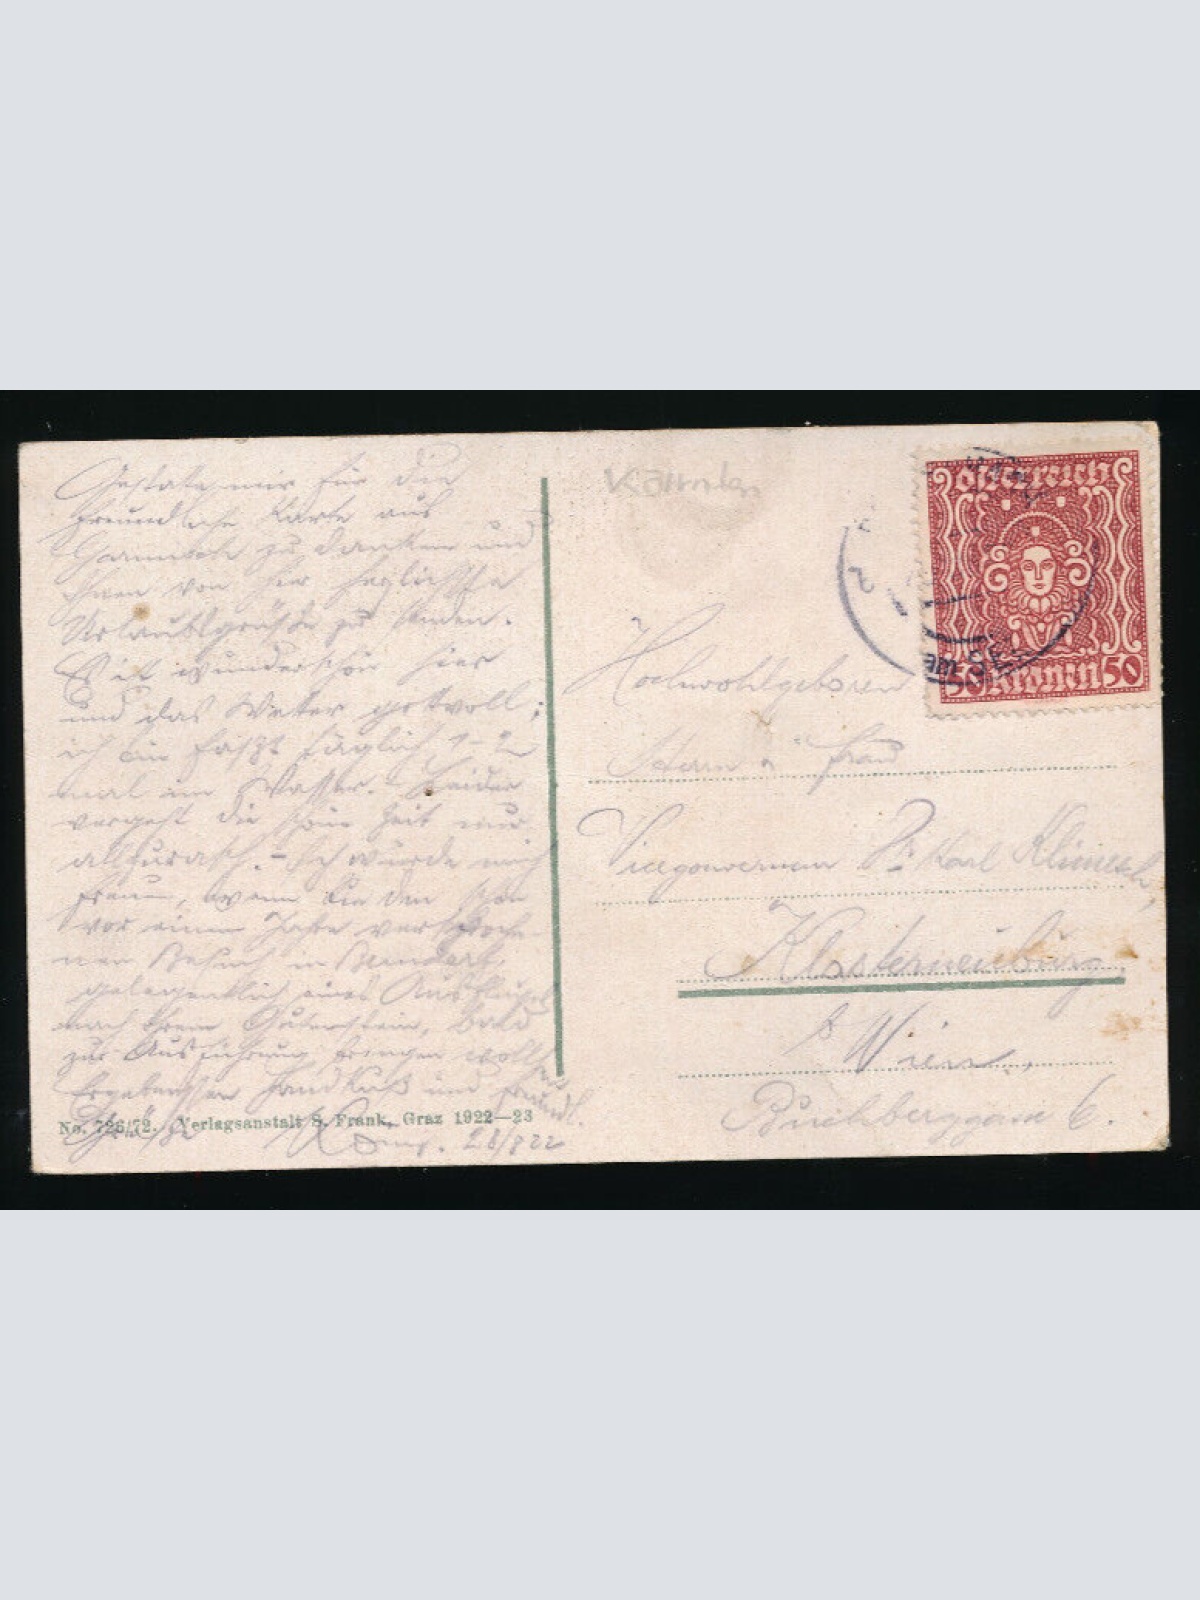 Gestatte mir für die
freundliche Karte aus
zu danken und
Ihnen von hier herzlichste
Urlaubsgrüße zu senden.
wunderschön hier
und das Wetter gottvoll;
ich bin fast täglich 1-2
mal im Wasser. Leider
vergeht die schöne Zeit nur
allzurasch. - Ich würde mich
freuen, wenn Sie den schon
vor einem Jahre versproche-
nen Besuch in
gelegentlich eines Ausfluges
nach Ihrem Gutenstein, bald
zur Ausführung bringen wollten.
Ergebensten Handkuß und freundl.
Grüße 28/8 22
No. 726/72. Verlagsanstalt S. Frank, Graz 1922—23
Kärnten
Österreich
50 Kronen 50
am SEE
Hochwohlgeboren
Herrn u Frau
Vicegouverneur Dr Karl Klimesch,
Klosterneuburg
b/ Wien,
Buchberggasse 6.